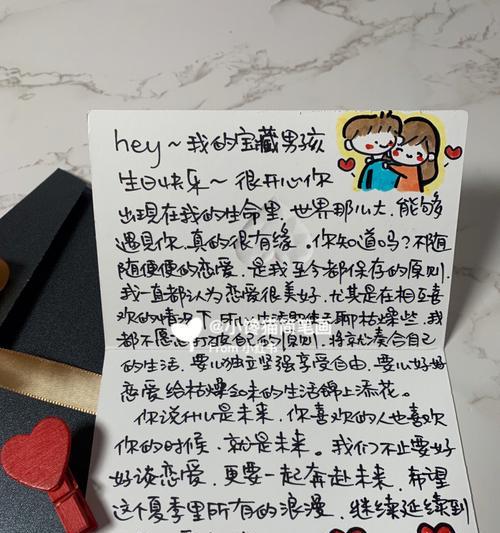 hey～我的宝藏男孩
生日快乐～很开心你
出现在我的生命里，世界那么大，能够
遇见你，真的很有缘。你知道吗？不随
随便便的恋爱，是我至今都保存的原则
我一直都认为恋爱很美好，尤其是在相互喜
欢的情况下
@小馋猫简笔画
From 小红书
聊枯燥些，我
都不愿意打破自己的原则，将就凑合自己
的生活，要心独立坚强享受自由，要心好好
恋爱给枯燥的生活锦上添花。
你说什么是未来，你喜欢的人也喜欢
你的时候，就是未来。我们不止要好
好谈恋爱，更要一起奔赴未来，希望
这个夏季里所有的浪漫，继续延续到